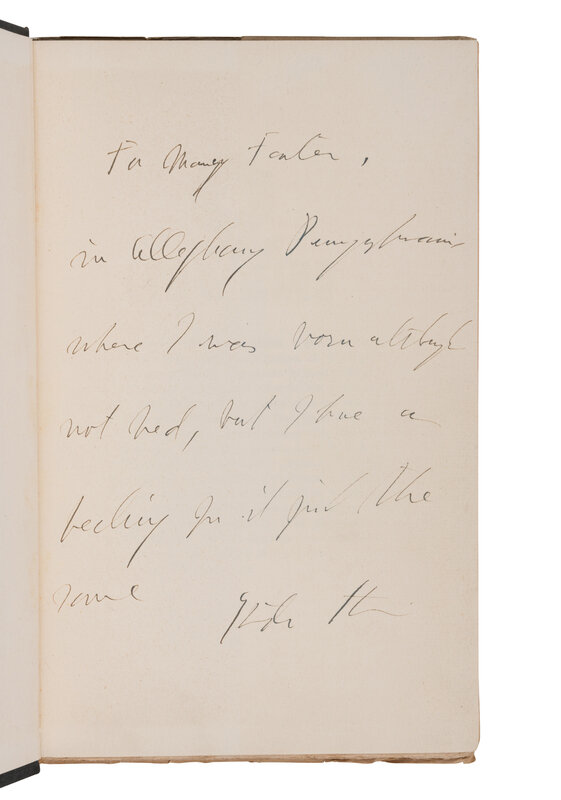 To Nancy Foster,
in Alleghany Pennsylvania
where I was born although
not bred, but I have a
feeling for it just the
same Gtrde Stn